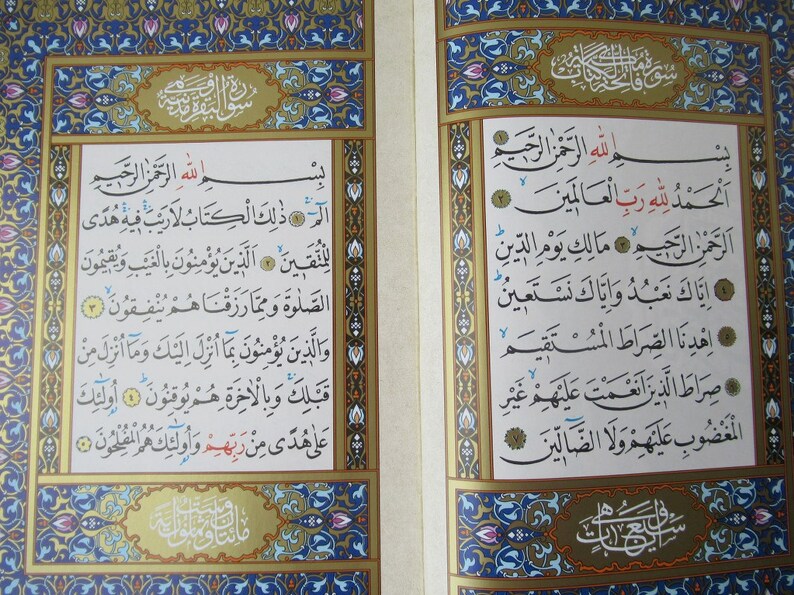 سورة فاتحة الكتاب مكية
بِسْمِ اللهِ الرَّحْمٰنِ الرَّحِيمِ ١
اَلْحَمْدُ لِلّٰهِ رَبِّ الْعَالَمِينَ ٢
اَلرَّحْمٰنِ الرَّحِيمِ ٣ مَالِكِ يَوْمِ الدِّينِ
٤ اِيَّاكَ نَعْبُدُ وَاِيَّاكَ نَسْتَعِينُ
٥ اِهْدِنَا الصِّرَاطَ الْمُسْتَقِيمَ
٦ صِرَاطَ الَّذِينَ اَنْعَمْتَ عَلَيْهِمْ غَيْرِ
الْمَغْضُوبِ عَلَيْهِمْ وَلَا الضَّالِّينَ ٧
وهي سبع آيات
سورة البقرة مدنية وهي
بِسْمِ اللهِ الرَّحْمٰنِ الرَّحِيمِ
الٓمٓ ١ ذٰلِكَ الْكِتَابُ لَا رَيْبَ فِيهِ هُدًى
لِلْمُتَّقِينَ ٢ اَلَّذِينَ يُؤْمِنُونَ بِالْغَيْبِ وَيُقِيمُونَ
الصَّلٰوةَ وَمِمَّا رَزَقْنَاهُمْ يُنْفِقُونَ ٣
وَالَّذِينَ يُؤْمِنُونَ بِمَٓا اُنْزِلَ اِلَيْكَ وَمَٓا اُنْزِلَ مِنْ
قَبْلِكَ وَبِالْاٰخِرَةِ هُمْ يُوقِنُونَ ٤ اُولٰٓئِكَ
عَلٰى هُدًى مِنْ رَبِّهِمْ وَاُولٰٓئِكَ هُمُ الْمُفْلِحُونَ ٥
مائتان وست وثمانون آية